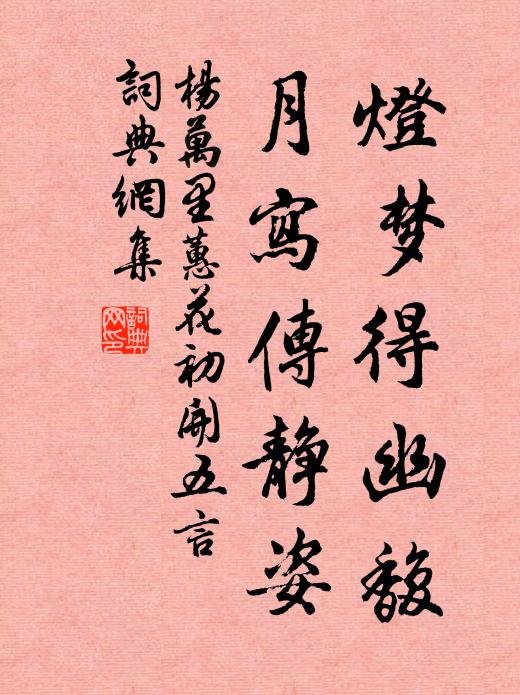 燈梦得幽馥
月寫傳靜姿
楊萬里蕙花初開五言
詞典網集
詞典网印